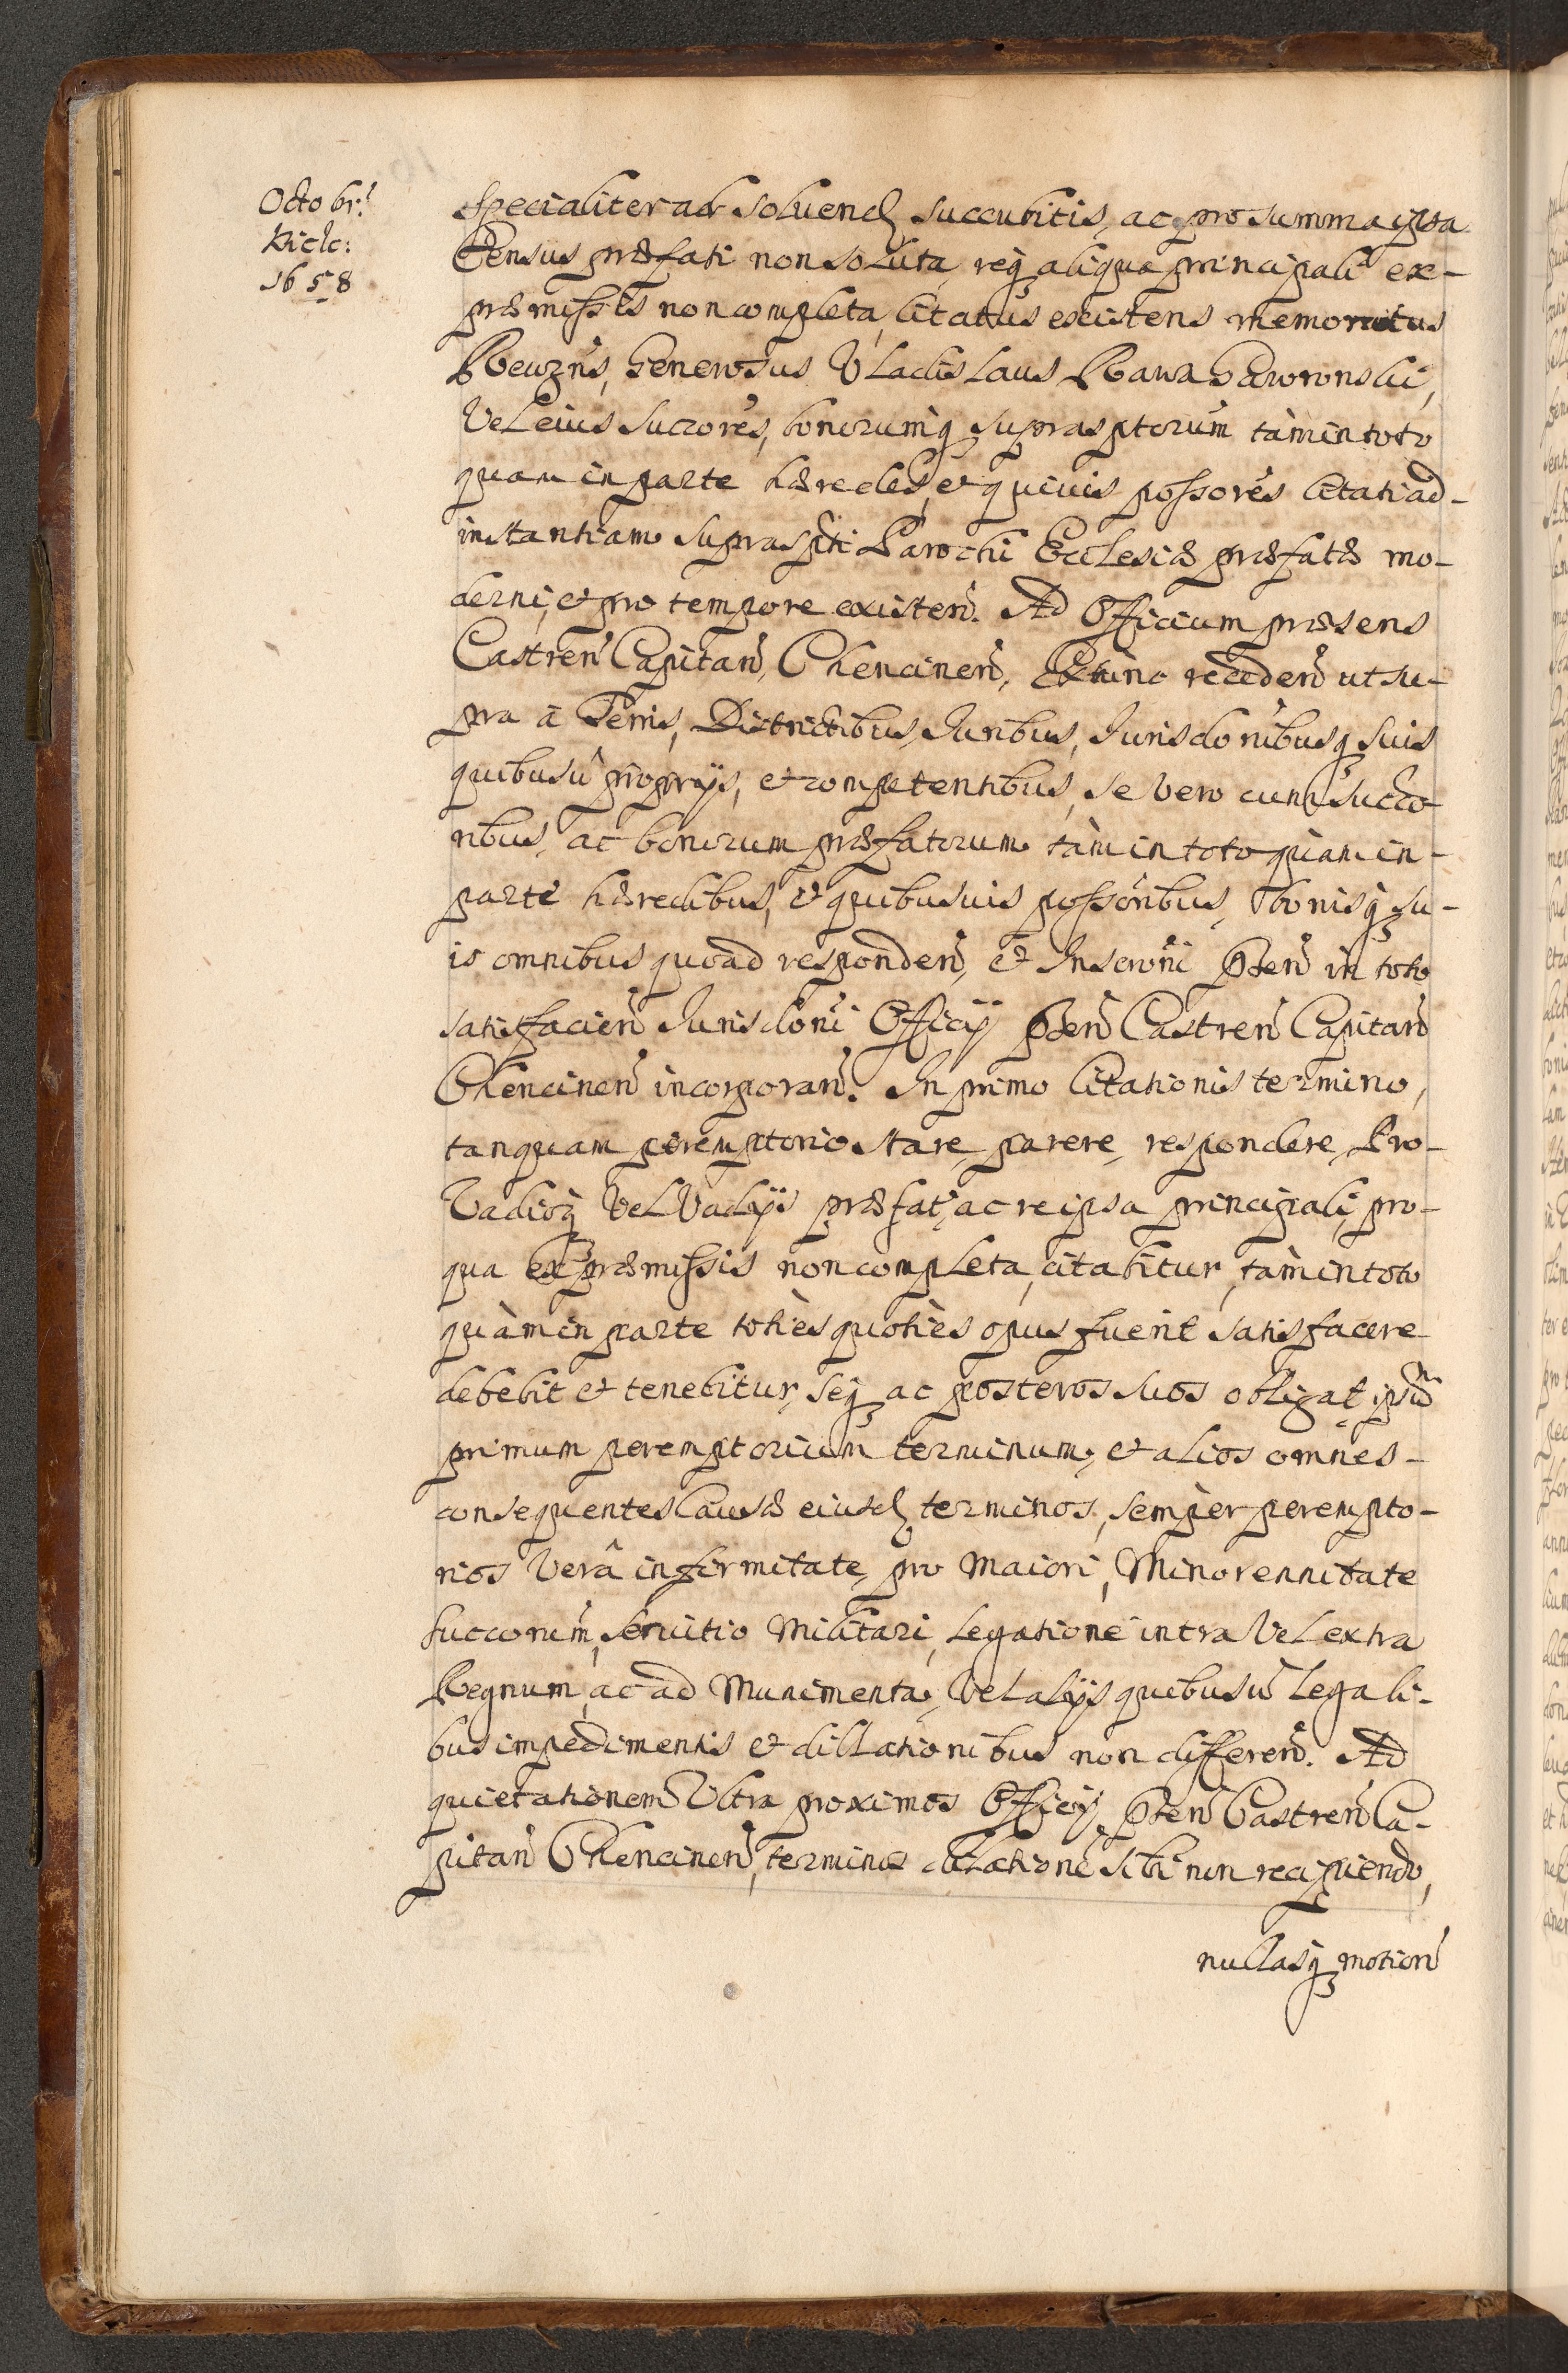 Octobr:
Kielc:
1658
specialiter ad solvend succubitis, ac pro summa ipsa
Census præfati non soluta, reqꝫ aliqua principali ex-
præmissis non completa, citatus existens memoratus
Recogns, Generosus Vladislaus Rawa Gaworonski,
Vel eius succores, bonorumqꝫ suprasptorum tàm in toto
quam in parte hæredes, et quiuis possores citati ad-
instantiam suprasptti Parochi Ecclesiæ præfatæ mo-
derni, et pro tempore existen. Ad Officium præsens
Castren Capitan, Chencinen, Extunc receden ut su-
pra à Terris, Districtibus, Juribus, Jurisdonibusqꝫ suis
quibusu proprijs, et competentibus, se vero cum succo
ribus, ac bonorum præfatorum tàm in toto quàm in-
parte hæredibus, et quibusuis possoribus, bonisqꝫ su-
is omnibus quoad responden, et Inscroni pden in toto
satisfacien Jurisdoni Officij pden Castren Capitan
Chencinen incorporan. In primo Citationis termino,
tanquam peremptorio stare, parere, respondere, Pro-
Vadioqꝫ Vel Vadijs præfat, ac re ipsa principali, pro-
qua ex præmissis non completa, citabitur, tàm in toto
quàm in parte totiès quotiès opus fuerit satisfacere
debebit et tenebitur, seqꝫ ac posteros suos obligat ipsu
primum peremptorium terminum, et alios omnes-
consequentes Causæ eiusd terminos, semper perempto-
rios Verâ infirmitate, pro Maiori, Minorennitate
succorum, seruitio Militari, Legatione intra Vel extra
Regnum, ac ad Munimenta, Vel alijs quibusu Legali-
bus impedimentis et dillationibus non differen. Ad
quietationem Ultra proximos Officij pden Castren Ca-
pitan Chencinen, terminos dilatione sibi non recipiendo,
nullasqꝫ motion